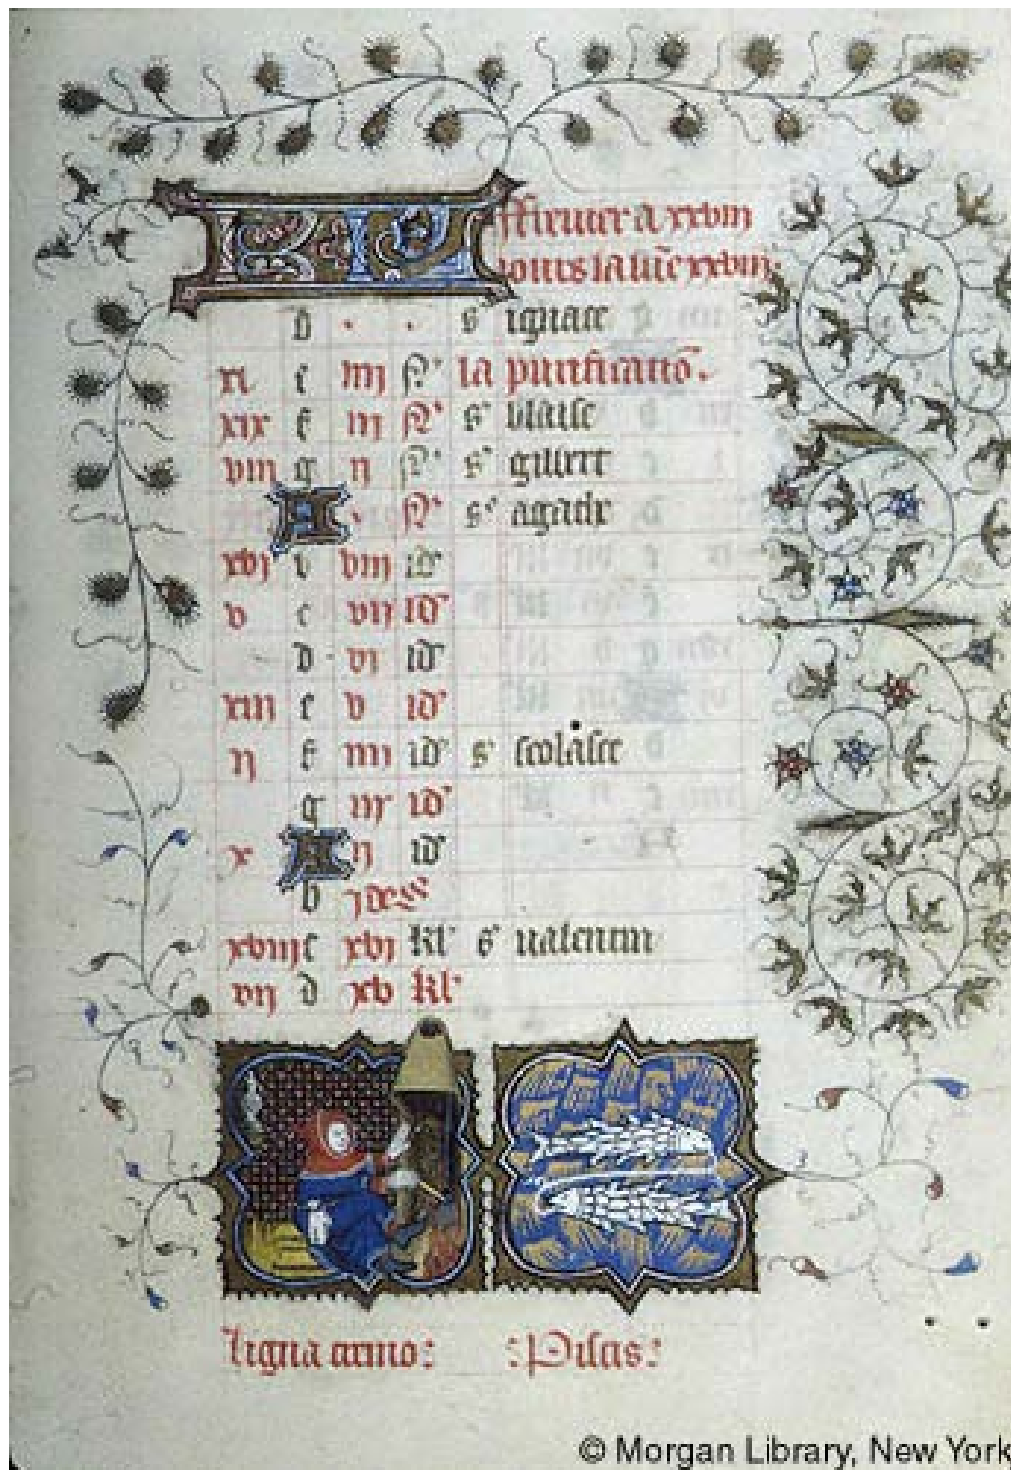 KL ffeurier a xxviii
iours la lune xxviii.
d . . s' ignace
xi e iiii N' la purificatiō.
xix f iii N' s' blaise
viii g ii N' s' gilbert
A . N' s' agathe
xvi b viii id'
v c vii id'
d vi id'
xiii e v id'
ii f iiii id' s' scolasce
g iii id'
x A ii id'
b ides
xviii c xvi kl' s' ualentin
vii d xv kl'
Ligna cremo: :Piscis:
© Morgan Library, New York